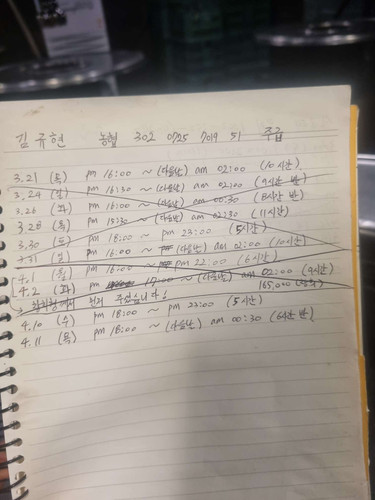 김규현 농협 302 0725 7019 51 주급
3.21 (목) pm 16:00 ~ (다음날) am 02:00 (10시간)
3.24 (일) pm 16:30 ~ (다음날) am 02:00 (9시간 반)
3.26 (화) pm 16:00 ~ (다음날) am 00:30 (8시간 반)
3.28 (목) pm 15:30 ~ (다음날) am 02:30 (11시간)
3.30 (토) pm 18:00 ~ pm 23:00 (5시간)
3.31 (일) pm 16:00 ~ (다음날) am 02:00 (10시간)
4.1 (월) pm 16:00 ~ pm 22:00 (6시간)
4.2 (화) pm 17:00 ~ (다음날) am 02:00 (9시간)
먼저 주셨습니다! 165,000
4.10 (수) pm 18:00 ~ pm 23:00 (5시간)
4.11 (목) pm 18:00 ~ (다음날) am 00:30 (6시간 반)